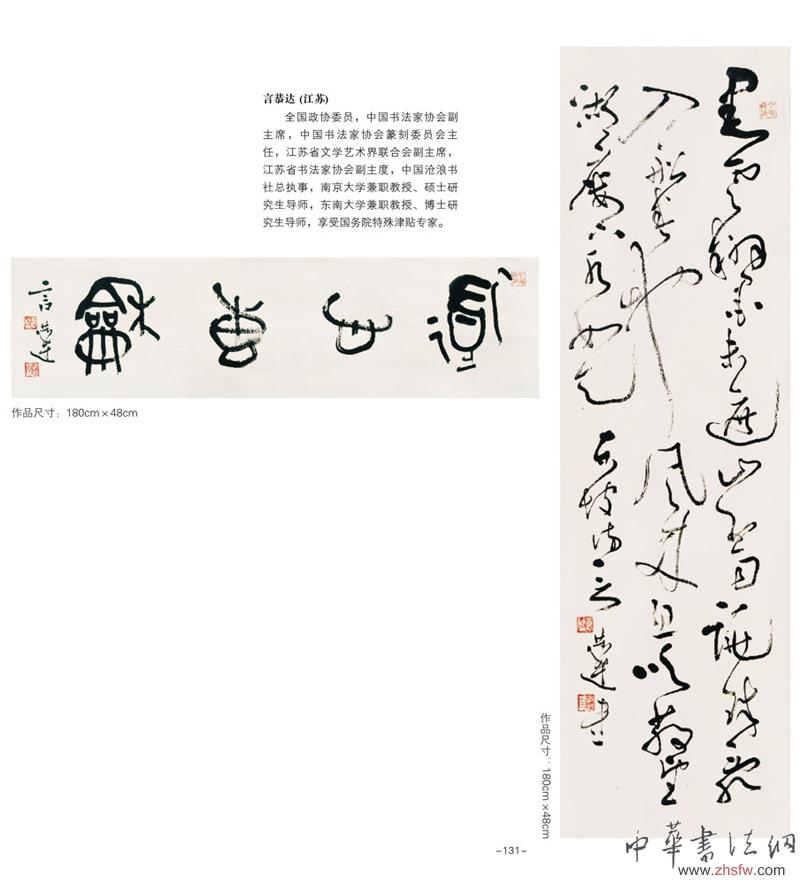 言恭达 (江苏)
全国政协委员，中国书法家协会副
主席，中国书法家协会篆刻委员会主
任，江苏省文学艺术界联合会副主席，
江苏省书法家协会副主度，中国沧浪书
社总执事，南京大学兼职教授、硕士研
究生导师，东南大学兼职教授、博士研
究生导师，享受国务院特殊津贴专家。
龢
言恭達
作品尺寸：180cm×48cm
黑雲翻墨未遮山白雨跳珠亂
入船卷地風来忽吹散望
湖樓下水如天 東坡詩 言恭達書
作品尺寸：180cm×48cm
-131-
中華書法網
www.zhsfw.com